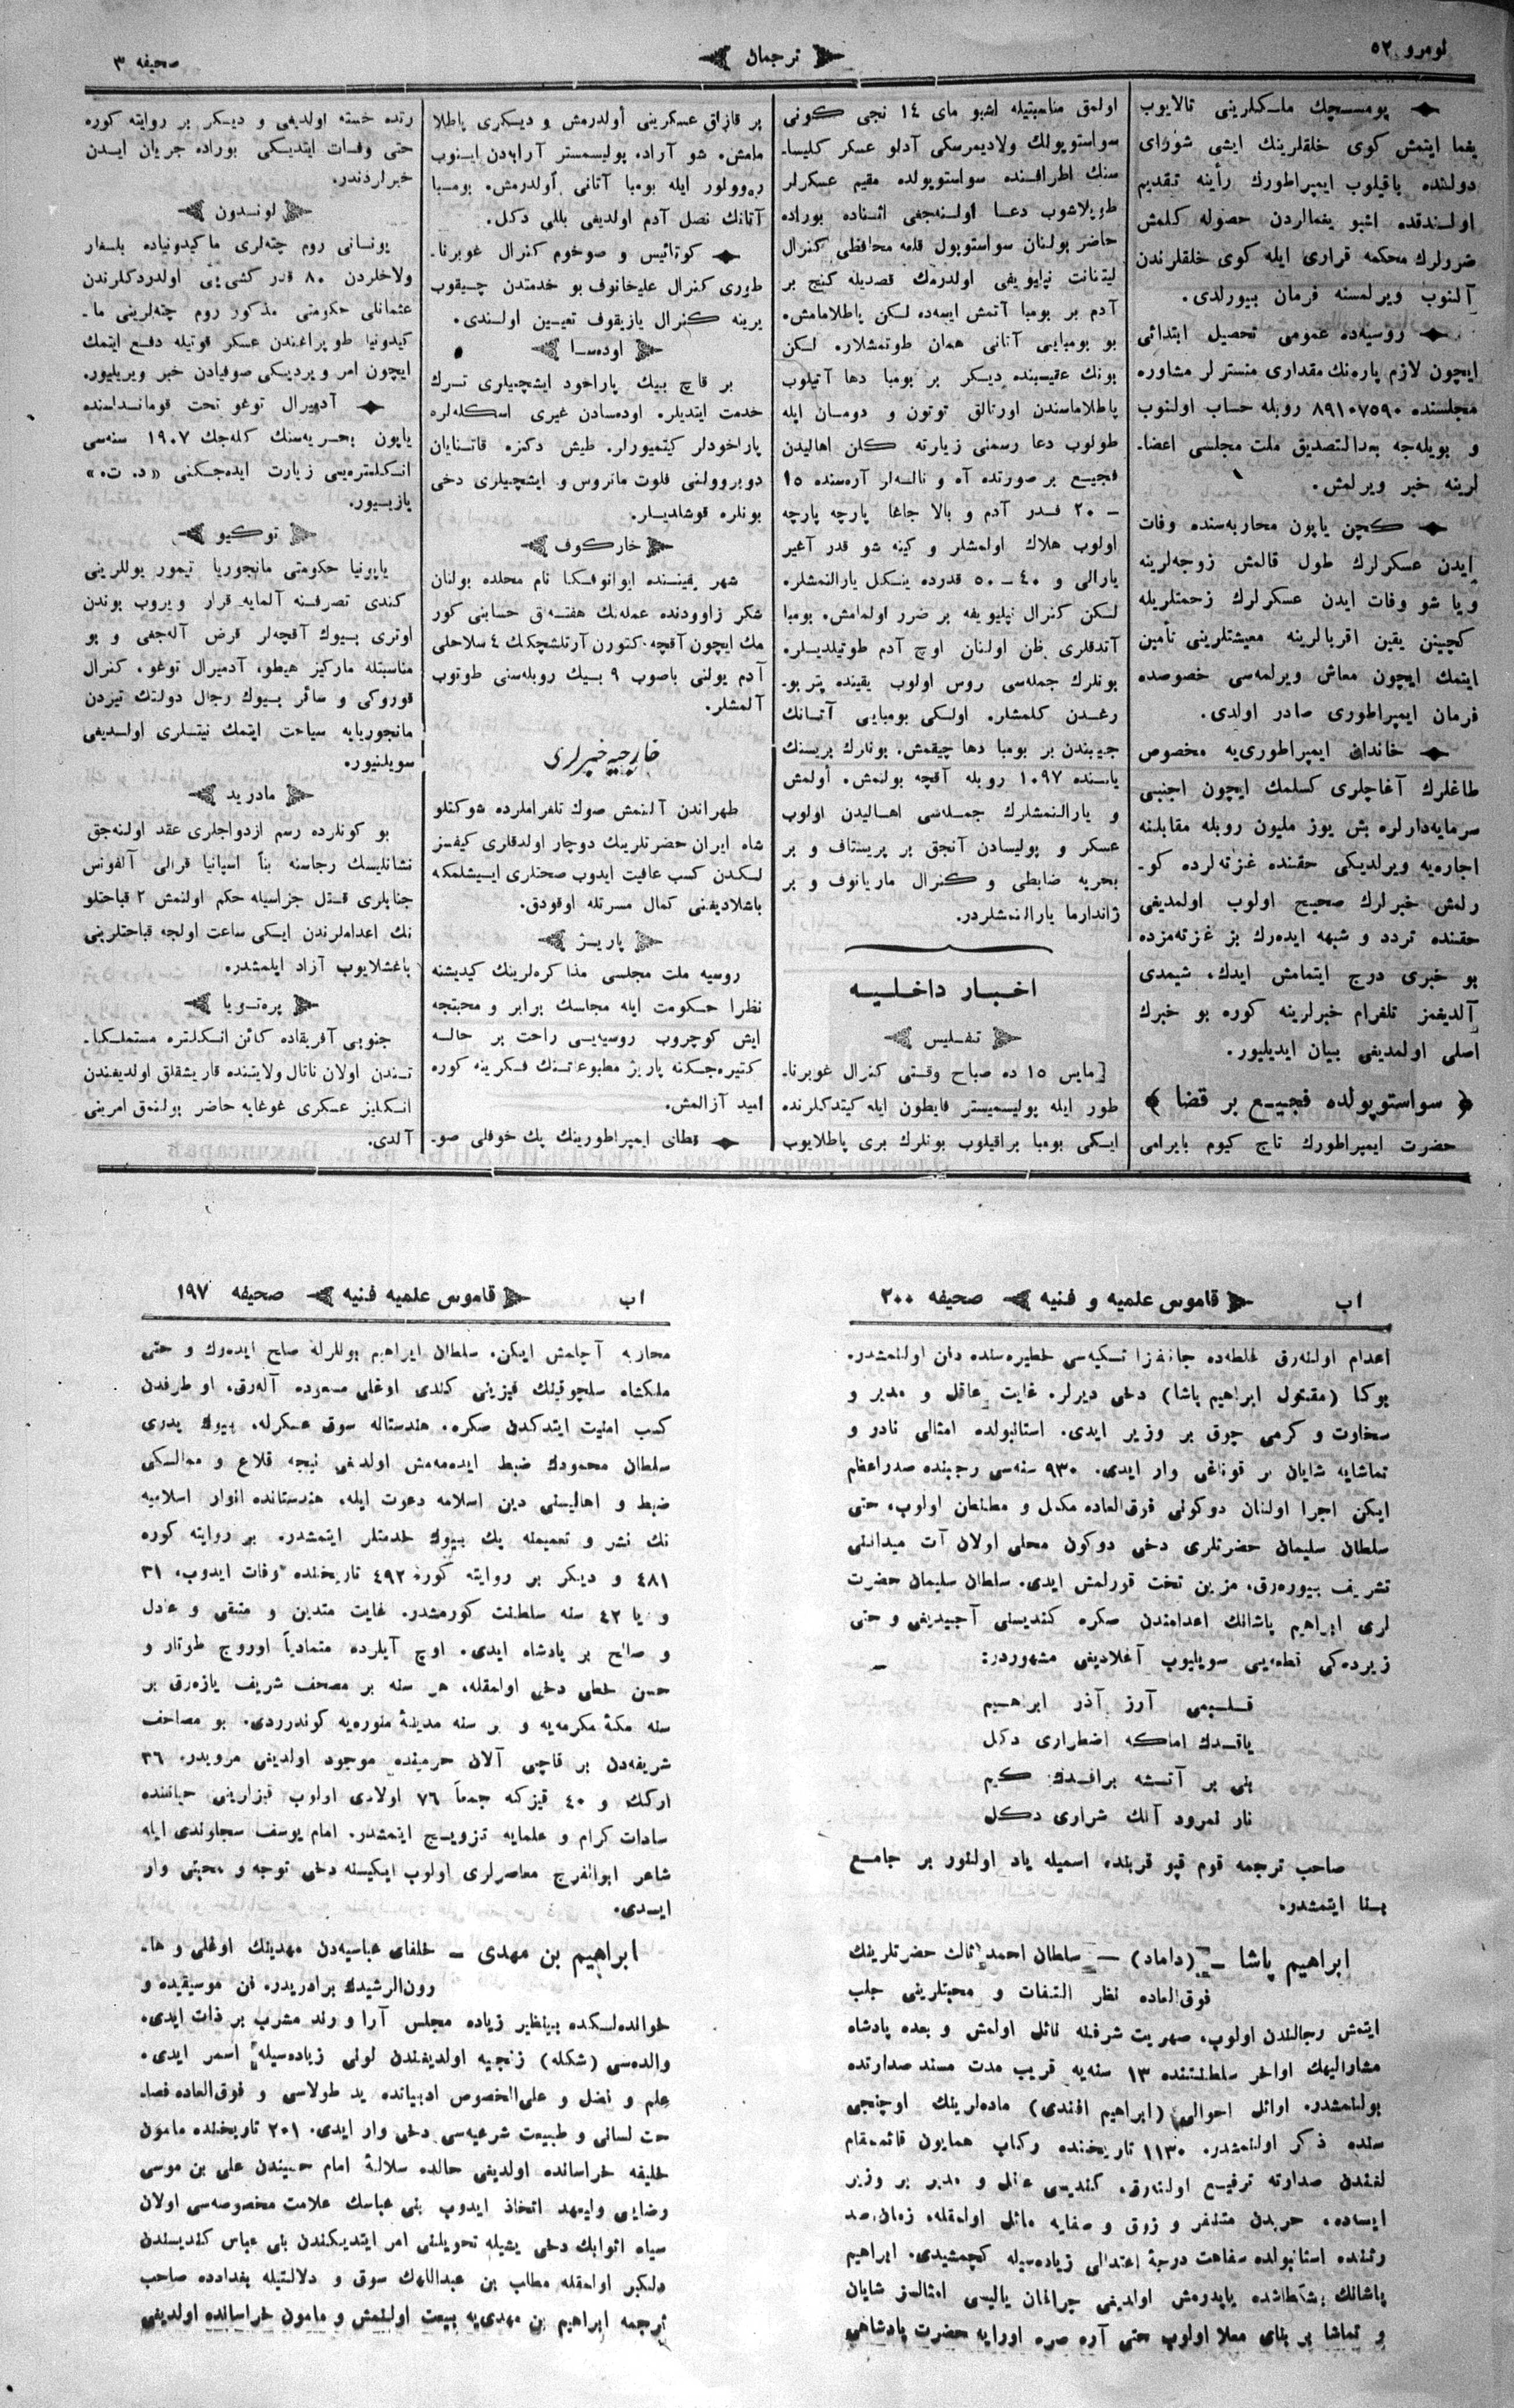 نومرو ٥٢
ترجمان
صحيفه ٣
پومسچك ملكلرينى تالايوب
يغما ايتمش كوى خلقلرينك ايشى شوراى
دولتده باقيلوب ايمپراطورك رأينه تقديم
اولندقده اشبو يغمالردن حصوله كلمش
ضررلرك محكمه قرارى ايله كوى خلقلرندن
آلنوب ويرلمسنه فرمان بيورلدى.
روسيه‌ده عمومى تحصيل ابتدائى
ايچون لازم پاره‌نك مقدارى منسترلر مشاوره
مجلسنده ٨٩١٠٧٥٩٠ روبله حساب اولنوب
و بويله‌جه بعدالتصديق ملت مجلسى اعضا‌ـ
لرينه خبر ويرلمش.
كچن ياپون محاربه‌سنده وفات
ايدن عسكرلرك طول قالمش زوجه‌لرينه
ويا شو وفات ايدن عسكرلرك زحمتلريله
كچينن يقين اقربالرينه معيشتلرينى تأمين
ايتمك ايچون معاش ويرلمه‌سى خصوصده
فرمان ايمپراطورى صادر اولدى.
خاندان ايمپراطورى‌يه مخصوص
طاغلرك آغاچلرى كسلمك ايچون اجنبى
سرمايه‌دارلره بش يوز مليون روبله مقابلنه
اجاره‌يه ويرلديكى حقنده غزته‌لرده كو‌ـ
رلمش خبرلرك صحيح اولوب اولمديغى
حقنده تردد و شبهه ايده‌رك بز غزته‌مزده
بو خبرى درج ايتمامش ايدك، شيمدى
آلديغمز تلغرام خبرلرينه كوره بو خبرك
اصلى اولمديغى بيان ايديليور.
﴿ سواستوپولده فجيع بر قضا ﴾
حضرت ايمپراطورك تاج كيوم بايرامى
اولمق مناسبتيله اشبو ماى ١٤ نجى كونى
سواستوپولك ولاديمرسكى آدلو عسكر كليسا‌ـ
سنك اطرافنده سواستوپولده مقيم عسكرلر
طوپلاشوب دعا اولنه‌جغى اثناده بوراده
حاضر بولنان سواستوپول قلعه محافظى كنرال
ليتنانت نپليويفى اولدرمك قصديله كنج بر
آدم بر بومبا آتمش ايسه‌ده لكن پاطلامامش.
بو بومبايى آتانى همان طوتمشلار. لكن
بونك عقيبنده ديكر بر بومبا دها آتيلوب
پاطلاماسندن اورتالق توتون و دومان ايله
طولوب دعا رسمنى زيارته كلن اهاليدن
فجيع بر صورتده آه و ناله‌لر آره‌سنده ١٥
ـ ٢٠ قدر آدم و بالا جاغا پارچه پارچه
اولوب هلاك اولمشلر و كينه شو قدر آغير
يارالى و ٤٠ ـ ٥٠ قدرده ينكل يارالنمشلر.
لكن كنرال نپليويفه بر ضرر اولمامش. بومبا
آتدقلرى ظن اولنان اوچ آدم طوتيلديلر.
بونلرك جمله‌سى روس اولوب يقينده پتربو‌ـ
رغدن كلمشلر. اولكى بومبايى آتانك
جيبندن بر بومبا دها چيقمش. بونلرك بريسنك
ياسنده ١٠٩٧ روبله آقچه بولنمش. أولمش
و يارالنمشلرك جمله‌سى اهاليدن اولوب
عسكر و پوليسادن آنجق بر پريستاف و بر
بحريه ضابطى و كنرال ماريانوف و بر
ژاندارما يارالنمشلردر.
اخبار داخليه
تفليس
[مايس ١٥ ده صباح وقتى كنرال غوبرنا‌ـ
طور ايله پوليسميستر فايطون ايله كيتدكلرنده
ايكى بومبا براقيلوب بونلرك برى پاطلايوب
بر قازاق عسكرينى أولدرمش و ديكرى پاطلا
مامش. شو آراده پوليسمستر آرابه‌دن اينوب
ره‌وولور ايله بومبا آتانى أولدرمش. بومبا
آتانك نصل آدم اولديغى بللى دكل.
كوتائيس و صوخوم كنرال غوبرنا‌ـ
طورى كنرال عليخانوف بو خدمتدن چيقوب
يرينه كنرال يازيقوف تعيين اولندى.
اوده‌سا
بر قاچ بيك پاراخود ايشچيلرى ترك
خدمت ايتديلر. اوده‌سادن غيرى اسكله‌لره
پاراخودلر كيتميورلر. طيش دكزه قاتنايان
دوبروولنى فلوت ماتروس و ايشچيلرى دخى
بونلره قوشلديلر.
خاركوف
شهر يقينينده ايوانوفكا نام محلده بولنان
شكر زاوودنده عمله‌نك هفته‌لق حسابنى كور
مك ايچون آقچه كتورن آرتلشچكك ٤ سلاحلى
آدم يولنى باصوب ٩ بيك روبله‌سنى طوتوب
آلمشلر.
خارجيه خبرلرى
طهراندن آلنمش صوك تلغراملرده شوكتلو
شاه ايران حضرتلرينك دوچار اولدقلرى كيفسز
لكدن كسب عافيت ايدوب صحتلرى ايپيشلمكه
باشلاديغنى كمال مسرتله اوقودق.
پاريز
روسيه ملت مجلسى مذاكره‌لرينك كيديشنه
نظرا حكومت ايله مجلسك برابر و محبتجه
ايش كوچروب روسيه‌يى راحت بر حاله
كتيره‌جكنه پاريز مطبوعاتنك فكرينه كوره
اميد آزالمش.
قطاى ايمپراطورينك پك خوفلى صو‌ـ
رتده خسته اولديغى و ديكر بر روايته كوره
حتى وفات ايتديكى بوراده جريان ايدن
خبرلردندر.
لوندون
يونانى روم چته‌لرى ماكيدونياده بلغار
ولاخلردن ٨٠ قدر كشى‌يى اولدردكلرندن
عثمانلى حكومتى مذكور روم چته‌لرينى ما‌ـ
كيدونيا طوپراغندن عسكر قوتيله دفع ايتمك
ايچون امر ويرديكى صوفيادن خبر ويريليور.
آدميرال توغو تحت قومانداسنده
ياپون بحريه‌سنك كله‌جك ١٩٠٧ سنه‌سى
انكلتره‌يى زيارت ايده‌جكنى «د. ت.»
يازيور.
توكيو
ياپونيا حكومتى مانجوريا تيمور يوللرينى
كندى تصرفنه آلمايه قرار ويروب بوندن
اوترى بيوك آقچه‌لر قرض آله‌جغى و بو
مناسبتله ماركيز هيطو، آدميرال توغو، كنرال
قوروكى و سائر بيوك رجال دولتك تيزدن
مانجوريايه سياحت ايتمك نيتلرى اولديغى
سويلنيور.
مادريد
بو كونلرده رسم ازدواجلرى عقد اولنه‌جق
نشانليسك رجاسنه بناً اسپانيا قرالى آلفونس
جنابلرى قتل جزاسيله حكم اولنمش ٢ قباحتلو
نك اعداملرندن ايكى ساعت اولجه قباحتلرينى
باغشلايوب آزاد ايلمشدر.
پره‌تويا
جنوبى آفريقاده كائن انكلتره مستملكا‌ـ
تندن اولان ناتال ولايتنده قاريشقلق اولديغندن
انكليز عسكرى غوغايه حاضر بولنمق امرينى
آلدى.
اب
قاموس علميه و فنيه
صحيفه ٢٠٠
اعدام اولنه‌رق غلطه‌ده جانفزا تكيه‌سى حظيره‌سنده دفن اولنمشدر.
بوكا (مقتول ابراهيم پاشا) دخى ديرلر. غايت عاقل و مدبر و
سخاوت و كرمى چوق بر وزير ايدى. استانبولده امثالى نادر و
تماشايه شايان بر قوناغى وار ايدى. ٩٣٠ سنه‌سى رجبنده صدراعظم
ايكن اجرا اولنان دوكونى فوق‌العاده مكمل و مطنطن اولوب، حتى
سلطان سليمان حضرتلرى دخى دوكون محلى اولان آت ميداننى
تشريف بيوره‌رق، مزين تخت قورلمش ايدى. سلطان سليمان حضرت
لرى ابراهيم پاشانك اعدامندن صكره كنديسنى آجيديغى و حتى
زيرده‌كى قطعه‌يى سويليوب آغلاديغى مشهوردر: ـ
قلبمى آرز آذر ابراهيم
ياقدك اماكه اضطرارى دكل
بنى بر آتشه براقدك كيم
نار نمرود آنك شرارى دكل
صاحب ترجمه قوم قپو قربنده اسميله ياد اولنور بر جامع
بنا ايتمشدر.
ابراهيم پاشا ـ (داماد) ـ سلطان احمد ثالث حضرتلرينك
فوق‌العاده نظر التفات و محبتلرينى جلب
ايتمش رجالندن اولوب، صهريت شرفنه نائل اولمش و بعده پادشاه
مشاراليهك اواخر سلطنتنده ١٣ سنه‌يه قريب مدت مسند صدارتده
بولنمشدر. اوائل احوالى (ابراهيم افندى) ماده‌لرينك اوچنجى
سنده ذكر اولنمشدر. ١١٣٠ تاريخنده ركاب همايون قائممقام
لغندن صدارته ترفيع اولنه‌رق، كنديسى عاقل و مدبر بر وزير
ايسه‌ده، حربدن متنفر و ذوق و صفايه مائل اولمقله، زمان صد
رتنده استانبولده سفاهت درجهٔ اعتدالى زياده‌سيله كچمشيدى. ابراهيم
پاشانك بشكطاشده ياپدرمش اولديغى چراغان ياليسى امثالسز شايان
و تماشا بر بناى معلا اولوب حتى آره صره اورايه حضرت پادشاهى
اب
قاموس علميه فنيه
صحيفه ١٩٧
محاربه آچلمش ايكن، سلطان ابراهيم بونلرله صلح ايده‌رك و حتى
ملكشاه سلجوقينك قيزينى كندى اوغلى مسعوده آله‌رق، او طرفدن
كسب امنيت ايتدكدن صكره، هندستانه سوق عسكرله، بيوك پدرى
سلطان محمودك ضبط ايده‌مه‌مش اولديغى نيجه قلاع و ممالكى
ضبط و اهاليسنى دين اسلامه دعوت ايله، هندستانده انوار اسلاميه
نك نشر و تعميمنه پك بيوك خدمتلر ايتمشدر. بر روايته كوره
٤٨١ و ديكر بر روايته كوره ٤٩٢ تاريخنده وفات ايدوب، ٣١
و يا ٤٢ سنه سلطنت كورمشدر. غايت متدين و متقى و عادل
و صالح بر پادشاه ايدى. اوچ آيلرده متمادياً اوروج طوتار و
حسن خطى دخى اولمقله، هر سنه بر مصحف شريف يازه‌رق بر
سنه مكهٔ مكرمه‌يه و بر سنه مدينهٔ منوره‌يه كوندرردى. بو مصاحف
شريفه‌دن بر قاچى آلان حرمينده موجود اولديغى مرويدر. ٣٦
اركك و ٤٠ قيزكه جمعاً ٧٦ اولادى اولوب قيزلرينى حياتنده
سادات كرام و علمايه تزويج ايتمشدر. امام يوسف سجاوندى ايله
شاعر ابوالفرج معاصرلرى اولوب ايكيسنه دخى توجه و محبتى وار
ايدى.
ابراهيم بن مهدى ـ خلفاى عباسيه‌دن مهدينك اوغلى و ها‌ـ
رون‌الرشيدك برادريدر. فن موسيقيده و
خوانده‌لكده بينظير زياده مجلس آرا و رند مشرب بر ذات ايدى.
والده‌سى (شكله) زنجيه اولديغندن لونى زياده‌سيله اسمر ايدى.
علم و فضل و على‌الخصوص ادبياتده يد طولاسى و فوق‌العاده فصا‌ـ
حت لسانى و طبيعت شرعيه‌سى دخى وار ايدى. ٢٠١ تاريخنده مامون
خليفه خراسانده اولديغى حالده سلالهٔ امام حسيندن على بن موسى
رضايى وليعهد اتخاذ ايدوب بنى عباسك علامت مخصوصه‌سى اولان
سياه اثوابك دخى يشيله تحويلنى امر ايتديكندن بنى عباس كنديسندن
دلكير اولمقله مطلب بن عبداللهك سوق و دلالتيله بغدادده صاحب
ترجمه ابراهيم بن مهدى‌يه بيعت اولنمش و مامون خراسانده اولديغى